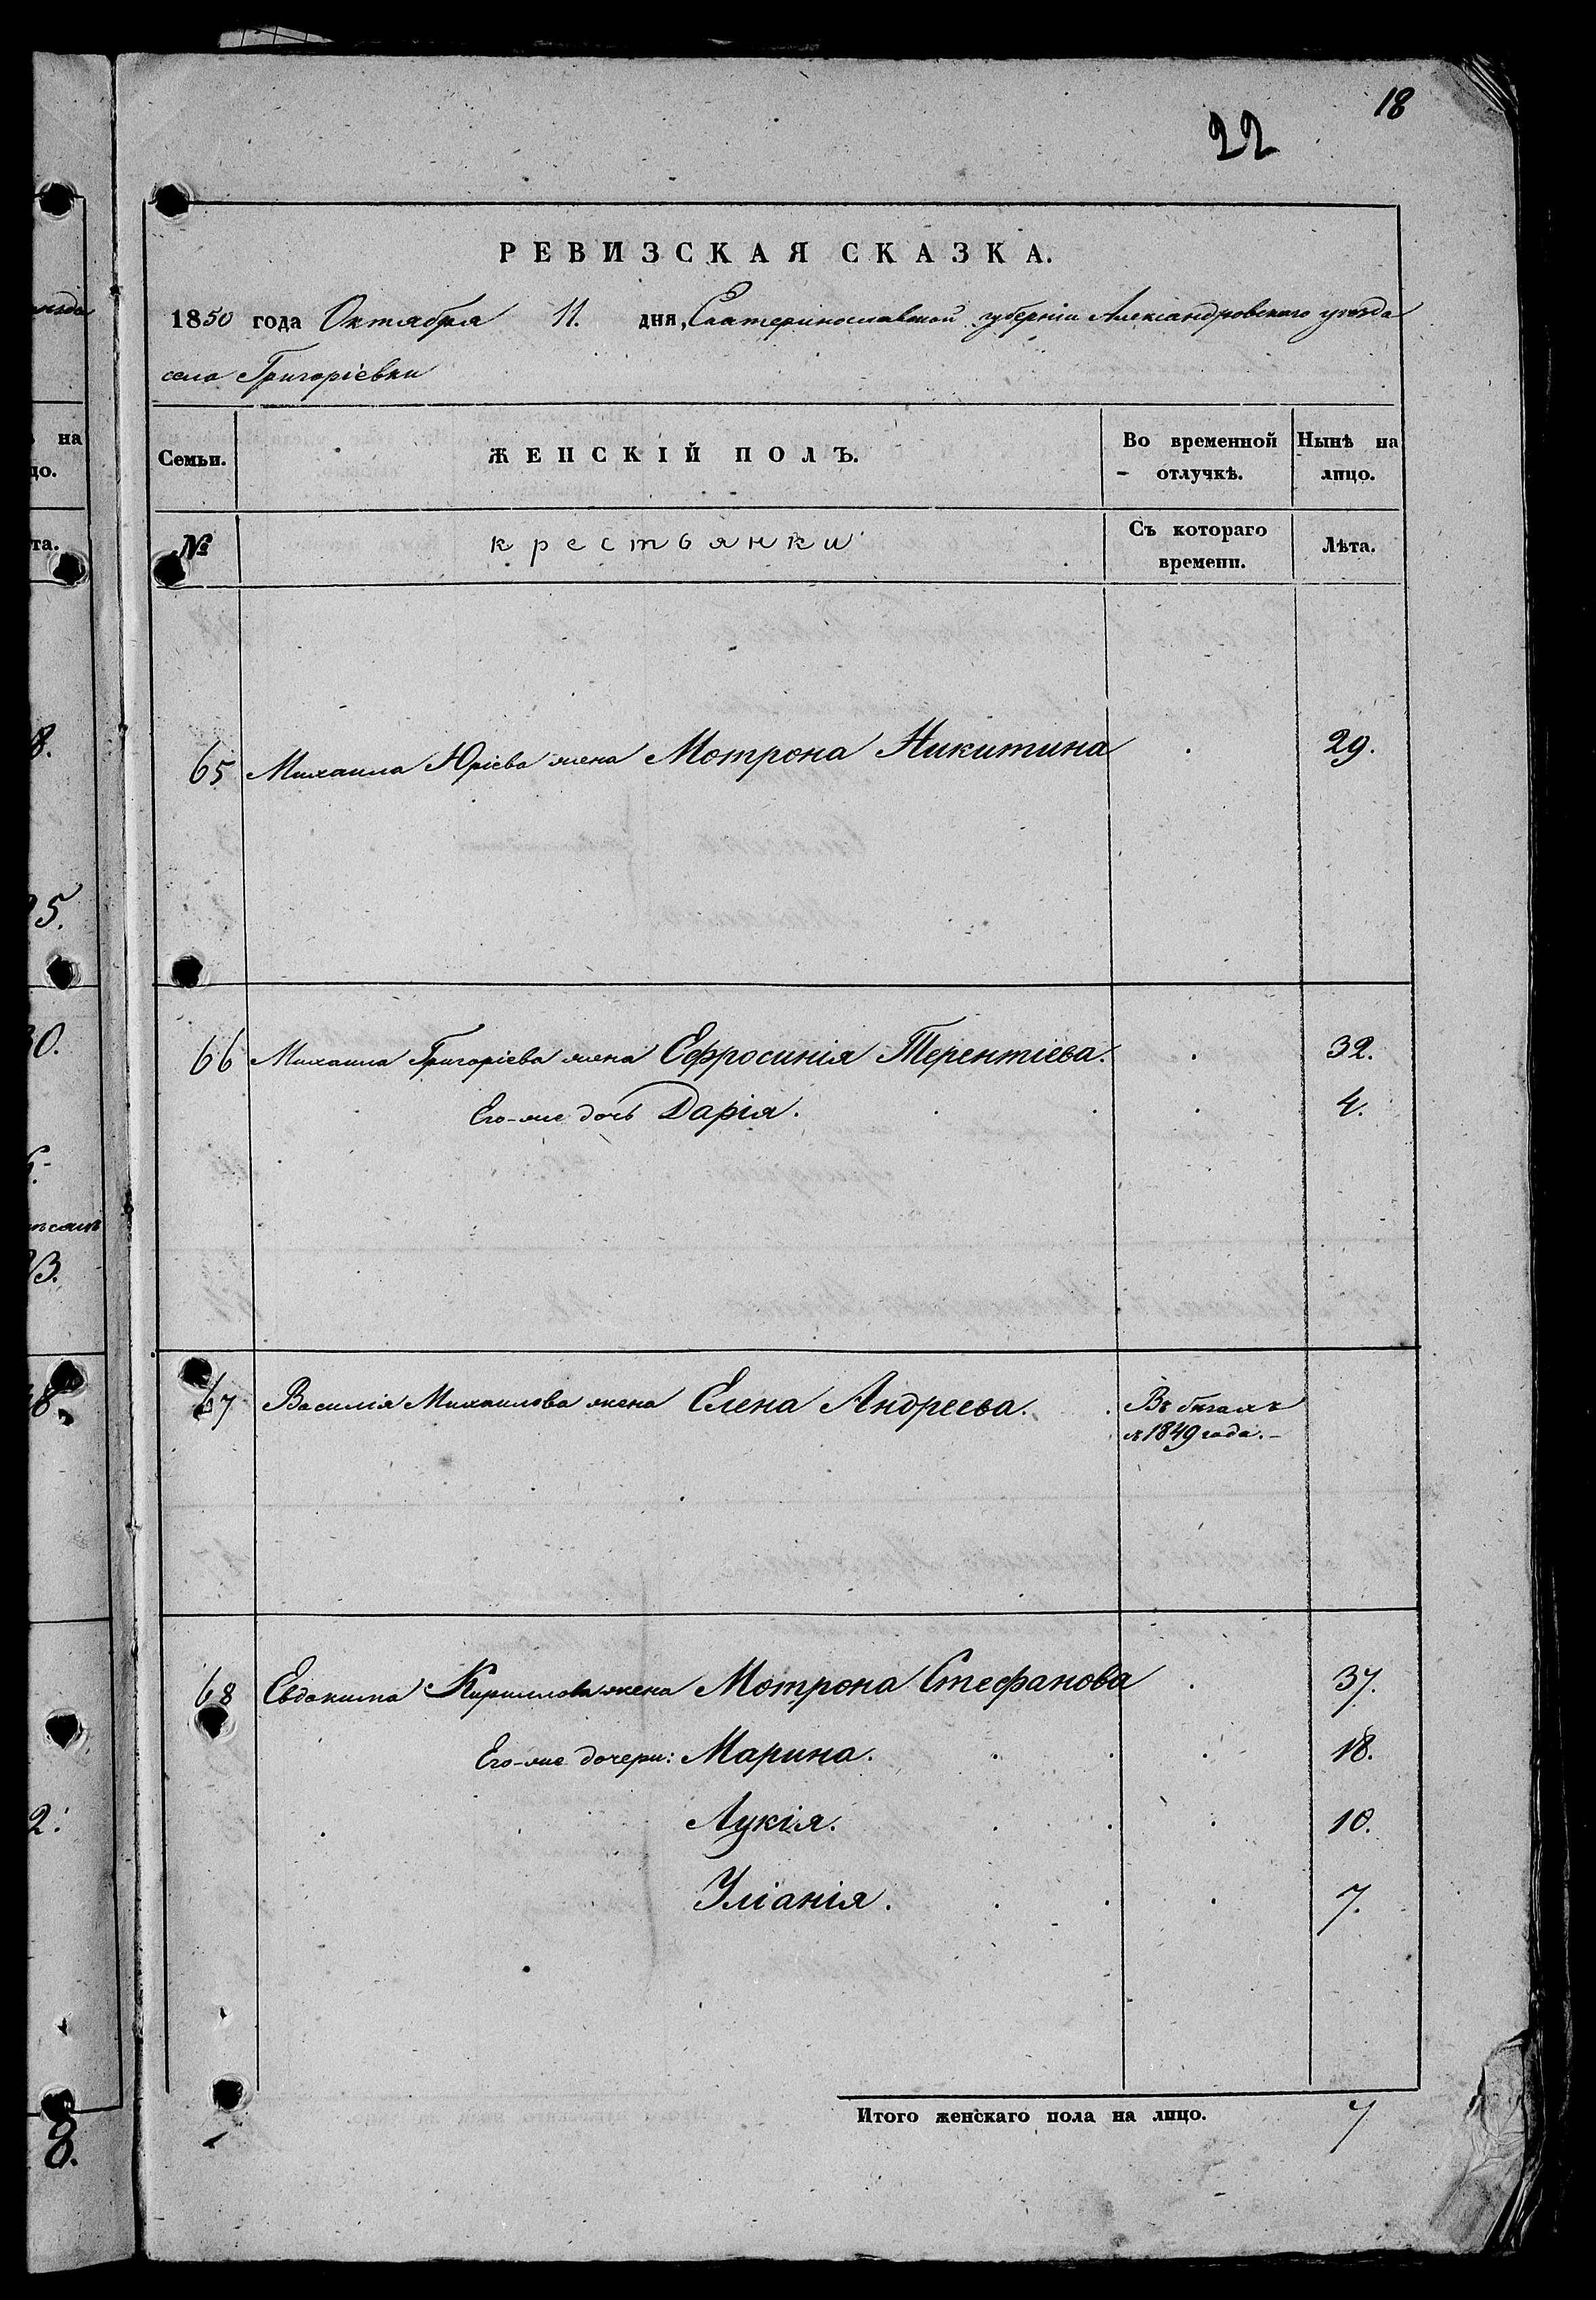 18
22
РЕВИЗСКАЯ СКАЗКА.
1850 года Октября 11. дня, Екатеринославской губерніи Александровского уѣзда
села Григоріевки
Семьи. ЖЕНСКІЙ ПОЛЪ. Во временной отлучкѣ. Нынѣ на лицо.
№ крестьянки Съ котораго времени. Лѣта.
65 Михаила Юріева жена Мотрона Никитина 29.
66 Михаила Григоріева жена Ефросинія Терентіева. 32.
Его-же дочь Дарія. 4.
67 Василія Михаилова жена Елена Андреева. Въ бѣгахъ
съ 1849 года.
68 Евдокима Кириллова жена Мотрона Стефанова 37.
Его-же дочери: Марина. 18.
Лукія. 10.
Уліанія. 7.
Итого женскаго пола на лицо. 7